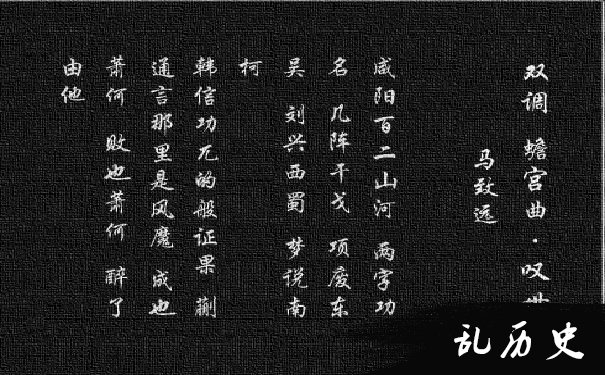 双调 蟾宫曲·叹世
马致远
咸阳百二山河 两字功
名 几阵干戈 项废东
吴 刘兴西蜀 梦说南
柯
韩信功兀的般证果 蒯
通言那里是风魔 成也
萧何 败也萧何 醉了
由他
乱历史